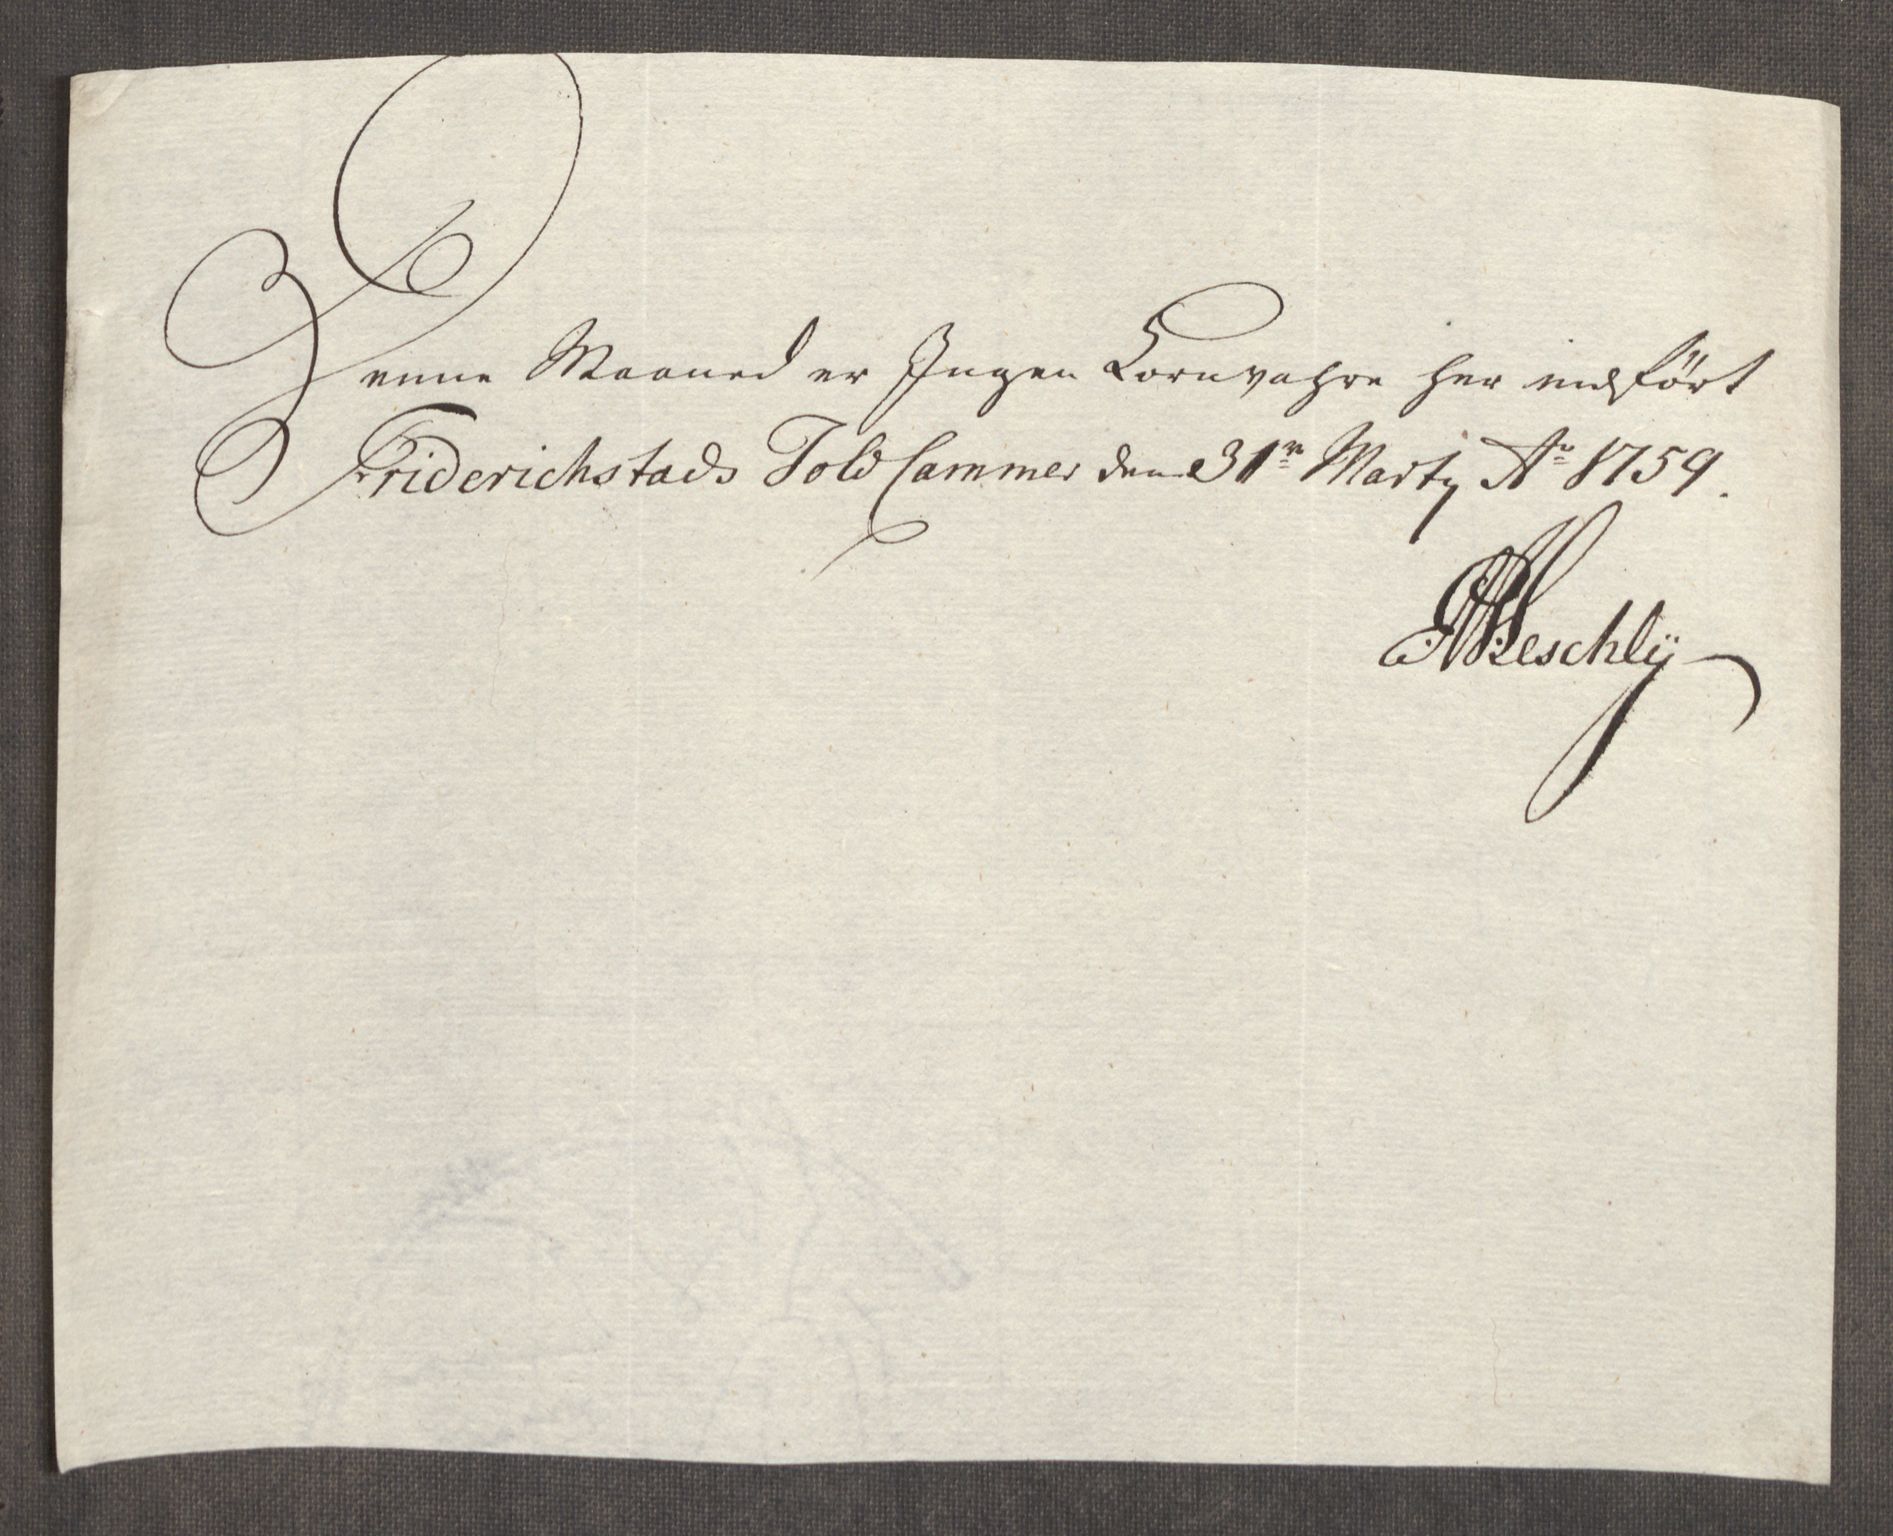 Denne Maaned er Ingen Kornvahre her indført
Friderichstads Told Cammer den 31te Marty Ao 1759.